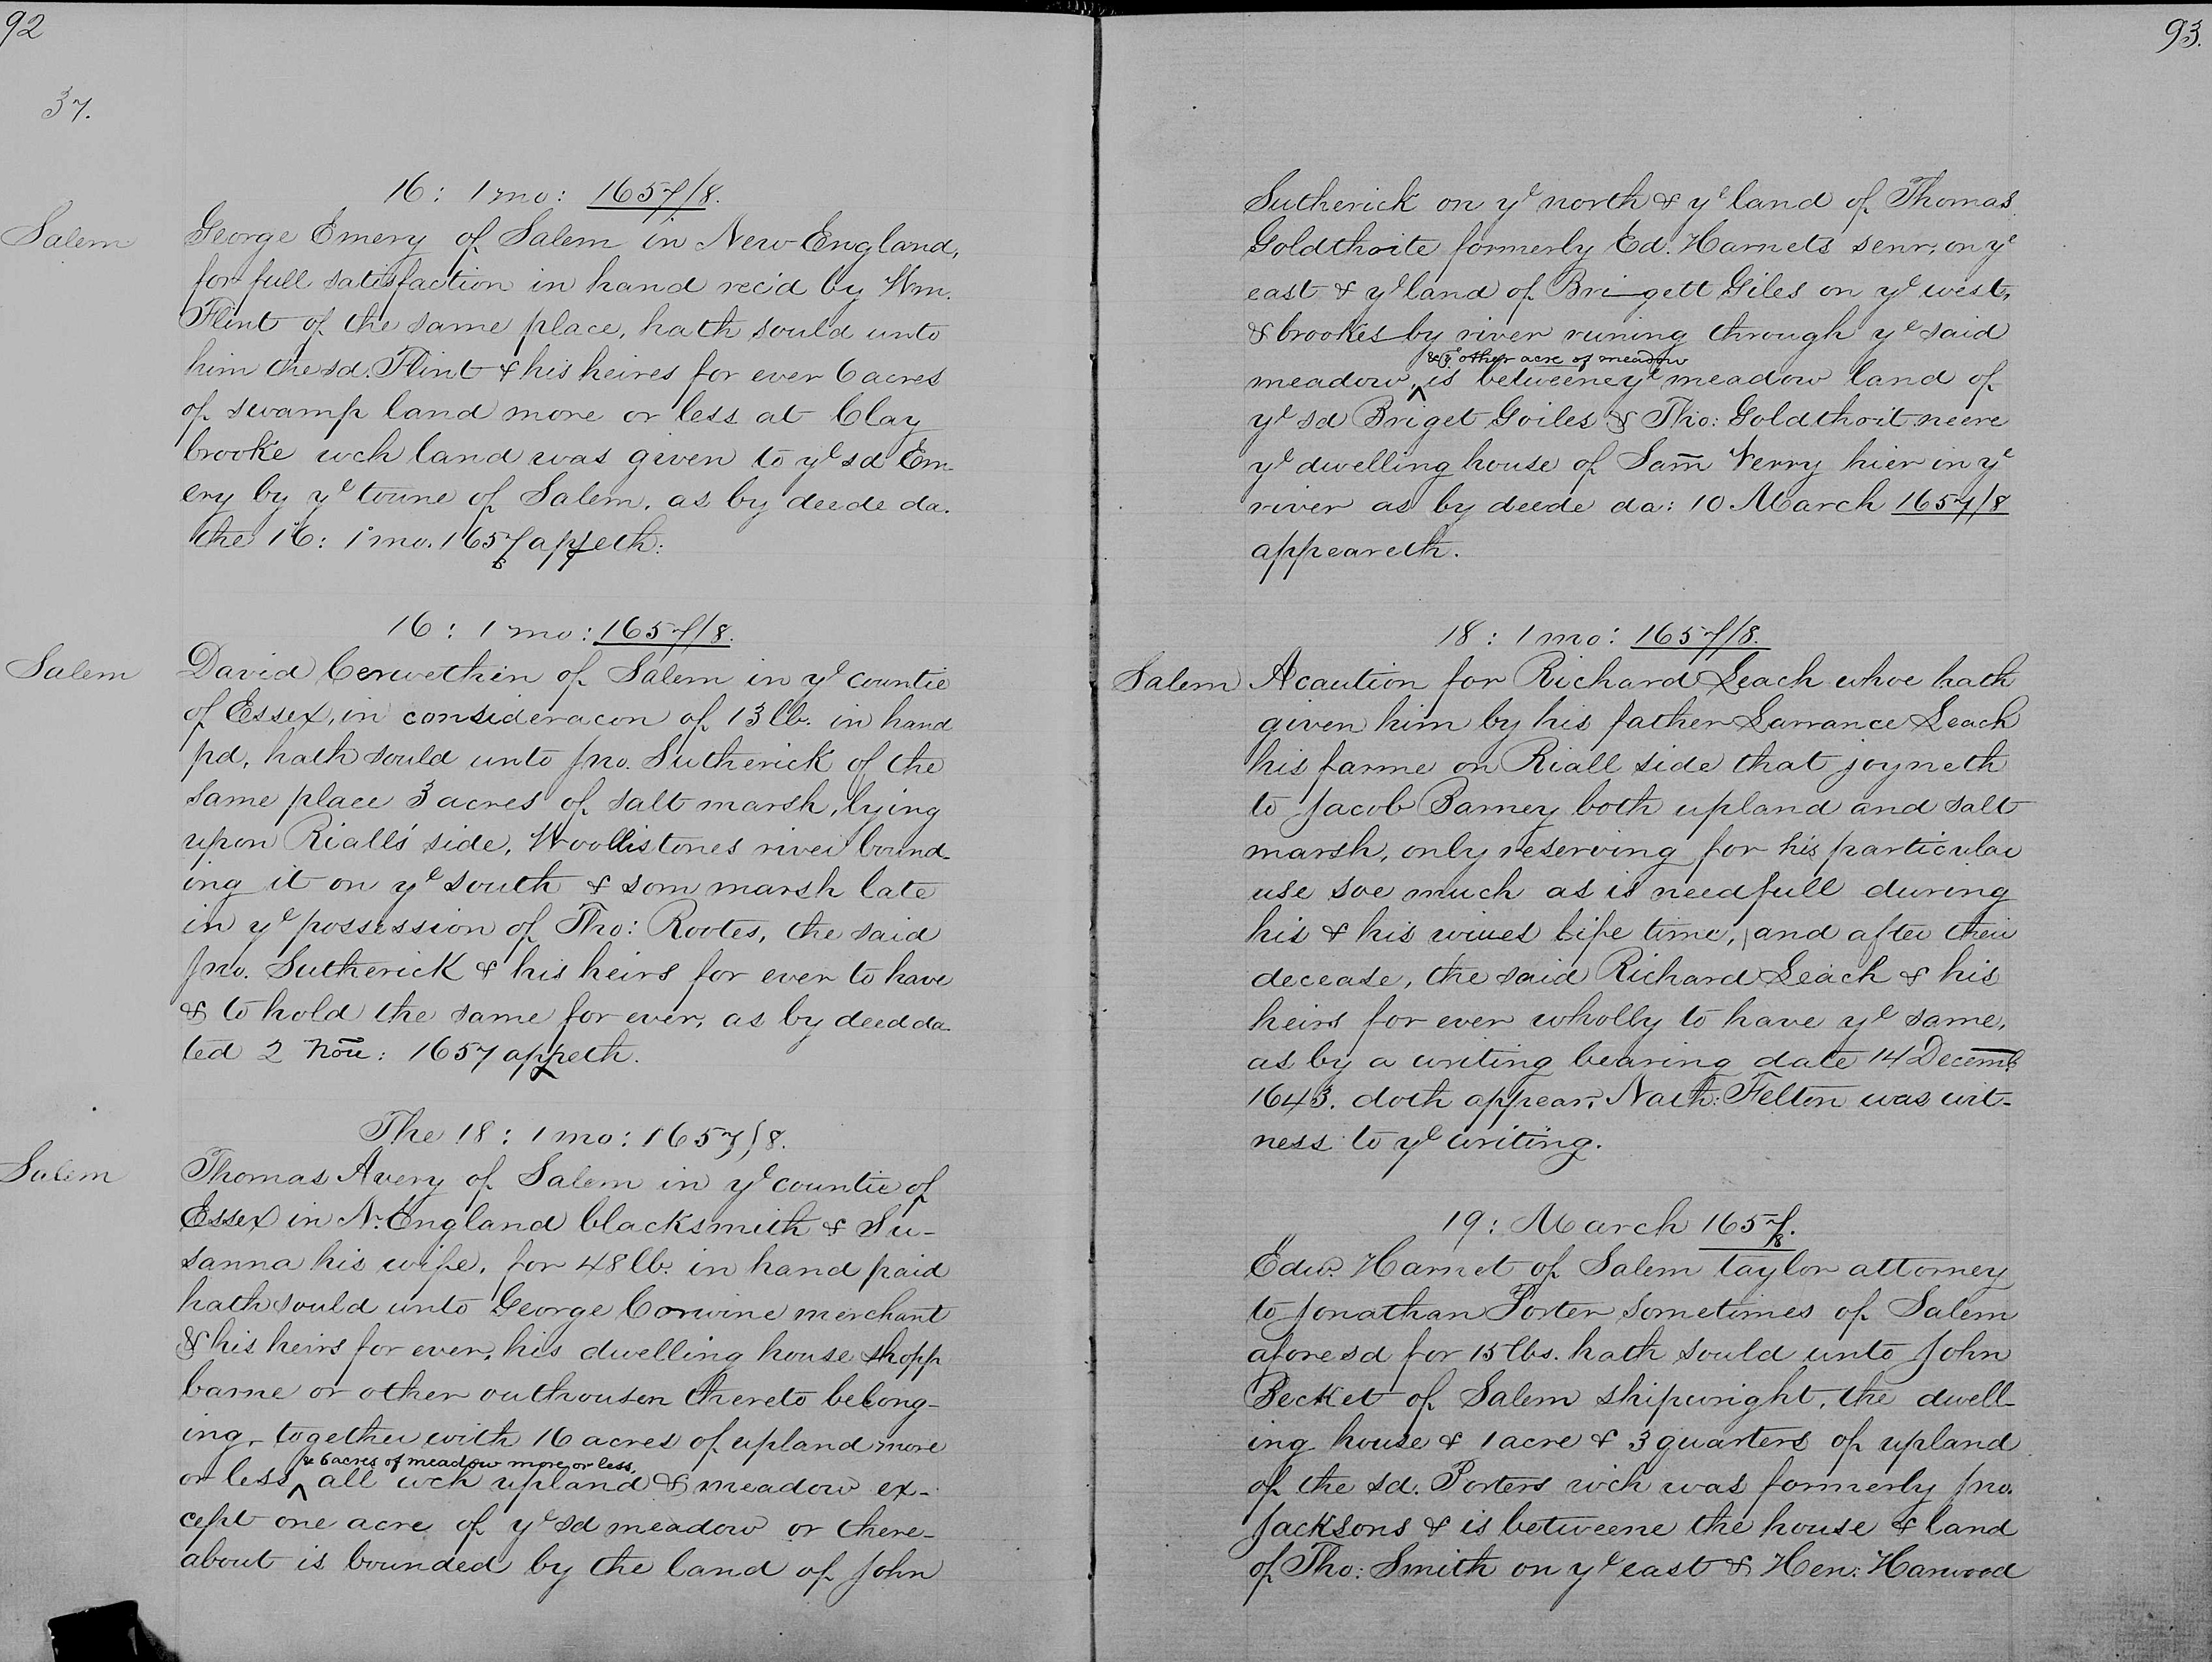 92
37.
16 : 1 mo : 1657/8.
Salem George Emery of Salem in New-England,
for full satisfaction in hand rec'd by Wm.
Flint of the same place, hath sould unto
him the sd. Flint & his heires for ever 6 acres
of swamp land more or less at Clay
brooke wch land was given to ye sd Em-
ery by ye toune of Salem, as by deede da.
the 16 : 1 mo. 1657/8 appeth :
16 : 1 mo : 1657/8.
Salem David Corwethin of Salem in ye countie
of Essex, in consideracon of 13 lb. in hand
pd, hath sould unto Jno. Sutherick of the
same place 3 acres of salt marsh, lying
upon Rialls side, Woollistones river bound-
ing it on ye south & som marsh late
in ye possession of Tho: Rootes, the said
Jno. Sutherick & his heirs for ever to have
& to hold the same for ever, as by deed da-
ted 2 Nou : 1657 appeth.
The 18 : 1 mo : 1657/8.
Salem Thomas Avery of Salem in ye countie of
Essex in N. England blacksmith & Su-
sanna his wife, for 48 lb. in hand paid
hath sould unto George Corwine merchant
& his heirs for ever, his dwelling house shopp
barne or other outhousen thereto belong-
ing, together with 16 acres of upland more
& 6 acres of meadow more or less,
or less ^ all wch upland & meadow ex-
cept one acre of ye sd meadow or there-
about is bounded by the land of John
93.
Sutherick on ye north & ye land of Thomas
Goldthrite formerly Ed. Harnets senr, on ye
east & ye land of Bri-gett Giles on ye west,
& brookes by river runing through ye said
& ye other acre of meadow
meadow, ^ is betweene ye meadow land of
ye sd Briget Goiles & Tho: Goldthrit neere
ye dwelling house of Sam Verry hier in ye
river as by deede da: 10 March 1657/8
appeareth.
18 : 1 mo : 1657/8.
Salem A caution for Richard Leach whoe hath
given him by his father Larrance Leach
his farme on Riall side that joyneth
to Jacob Barney both upland and salt
marsh, only reserving for his particular
use soe much as is needfull during
his & his wiues life time, and after their
decease, the said Richard Leach & his
heirs for ever wholly to have ye same,
as by a writing bearing date 14 Decemb
1643. doth appear, Nath: Felton was wit-
ness to ye writing.
19 : March 1657/8.
Edw. Harnet of Salem taylor attorney
to Jonathan Porter sometimes of Salem
aforesd for 15 lbs. hath sould unto John
Becket of Salem shipwright, the dwell-
ing house & 1 acre & 3 quarters of upland
of the sd. Porters wich was formerly Jno.
Jacksons & is betweene the house & land
of Tho: Smith on ye east & Hen: Harwood